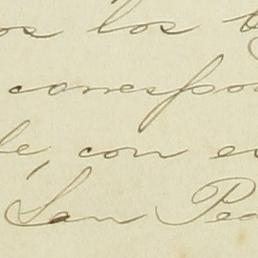 os los
correspo
le, con es
San Ped